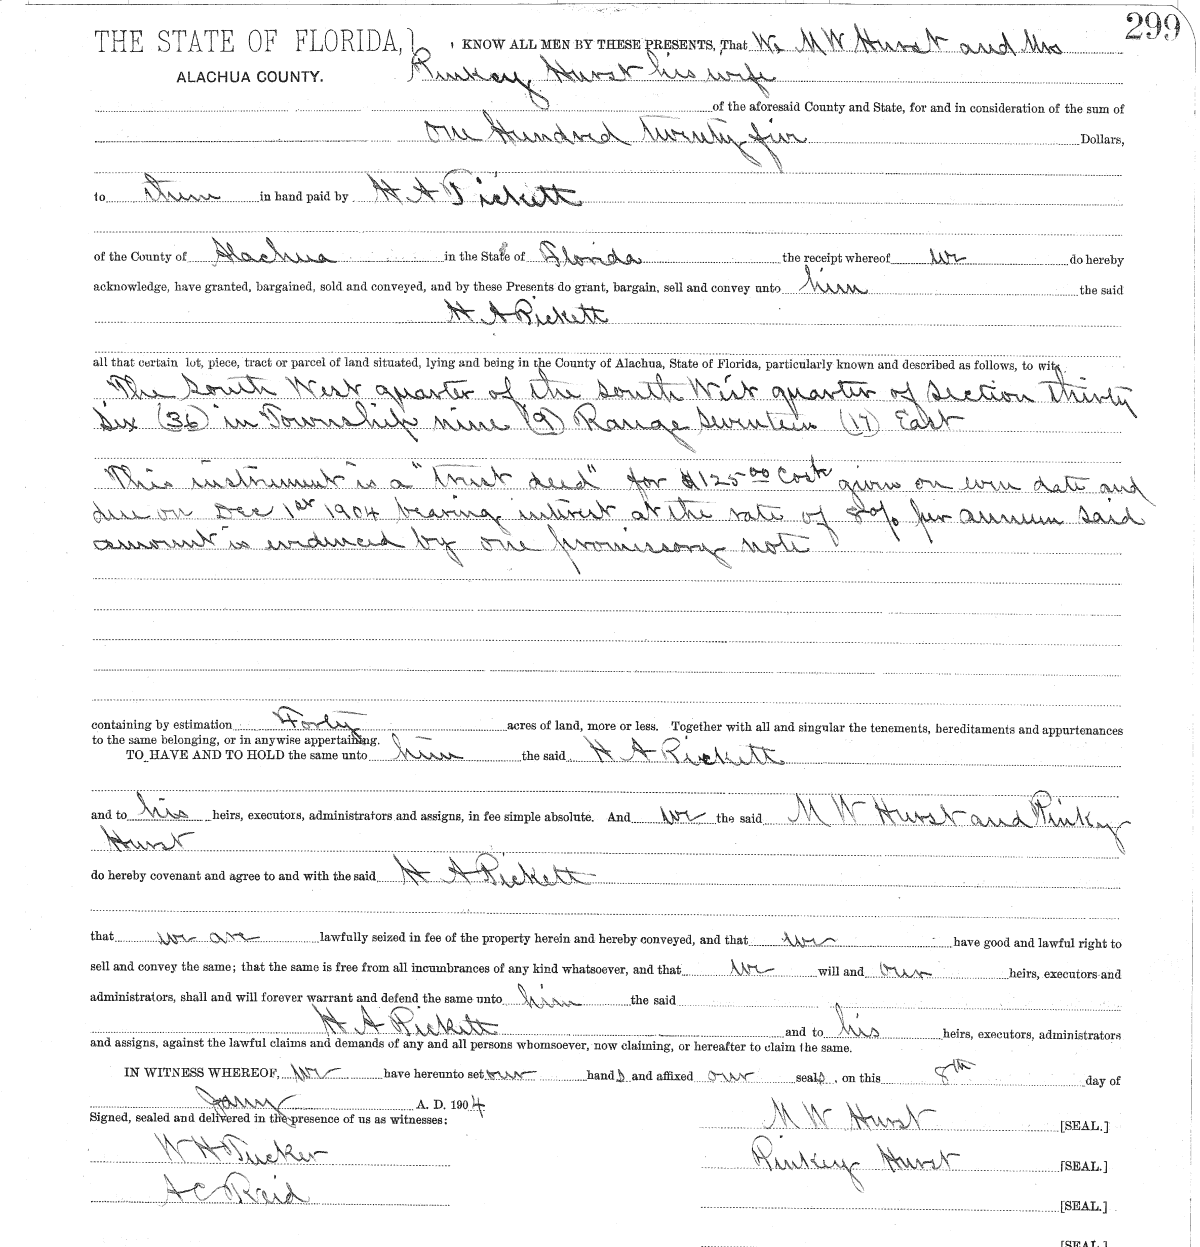 299
THE STATE OF FLORIDA,} KNOW ALL MEN BY THESE PRESENTS, That We M W Hurst and Mrs
ALACHUA COUNTY. Pinkey Hurst his wife
of the aforesaid County and State, for and in consideration of the sum of
One Hundred twenty five Dollars,
to them in hand paid by H A Pickett
of the County of Alachua in the State of Florida the receipt whereof we do hereby
acknowledge, have granted, bargained, sold and conveyed, and by these Presents do grant, bargain, sell and convey unto him the said
H A Pickett
all that certain lot, piece, tract or parcel of land situated, lying and being in the County of Alachua, State of Florida, particularly known and described as follows, to wit,
The South West quarter of the South West quarter of Section thirty
Six (36) in Township nine (9) Range Seventeen (17) East
This instrument is a "trust deed" for $125.00 Cash given on even date and
due on Dec 1st 1904 bearing interest at the rate of 8% per annum said
amount is evidenced by one promissory note
containing by estimation Forty acres of land, more or less. Together with all and singular the tenements, hereditaments and appurtenances
to the same belonging, or in anywise appertaining.
TO HAVE AND TO HOLD the same unto him the said H A Pickett
and to his heirs, executors, administrators and assigns, in fee simple absolute. And we the said M W Hurst and Pinkey
Hurst
do hereby covenant and agree to and with the said H A Pickett
that we are lawfully seized in fee of the property herein and hereby conveyed, and that we have good and lawful right to
sell and convey the same; that the same is free from all incumbrances of any kind whatsoever, and that we will and our heirs, executors and
administrators, shall and will forever warrant and defend the same unto him the said
H A Pickett and to his heirs, executors, administrators
and assigns, against the lawful claims and demands of any and all persons whomsoever, now claiming, or hereafter to claim the same.
IN WITNESS WHEREOF, we have hereunto set our hands and affixed our seals, on this 8th day of
Jany A. D. 1904
Signed, sealed and delivered in the presence of us as witnesses: M W Hurst [SEAL.]
W H Tucker Pinkey Hurst [SEAL.]
A C Reid [SEAL.]
[SEAL.]